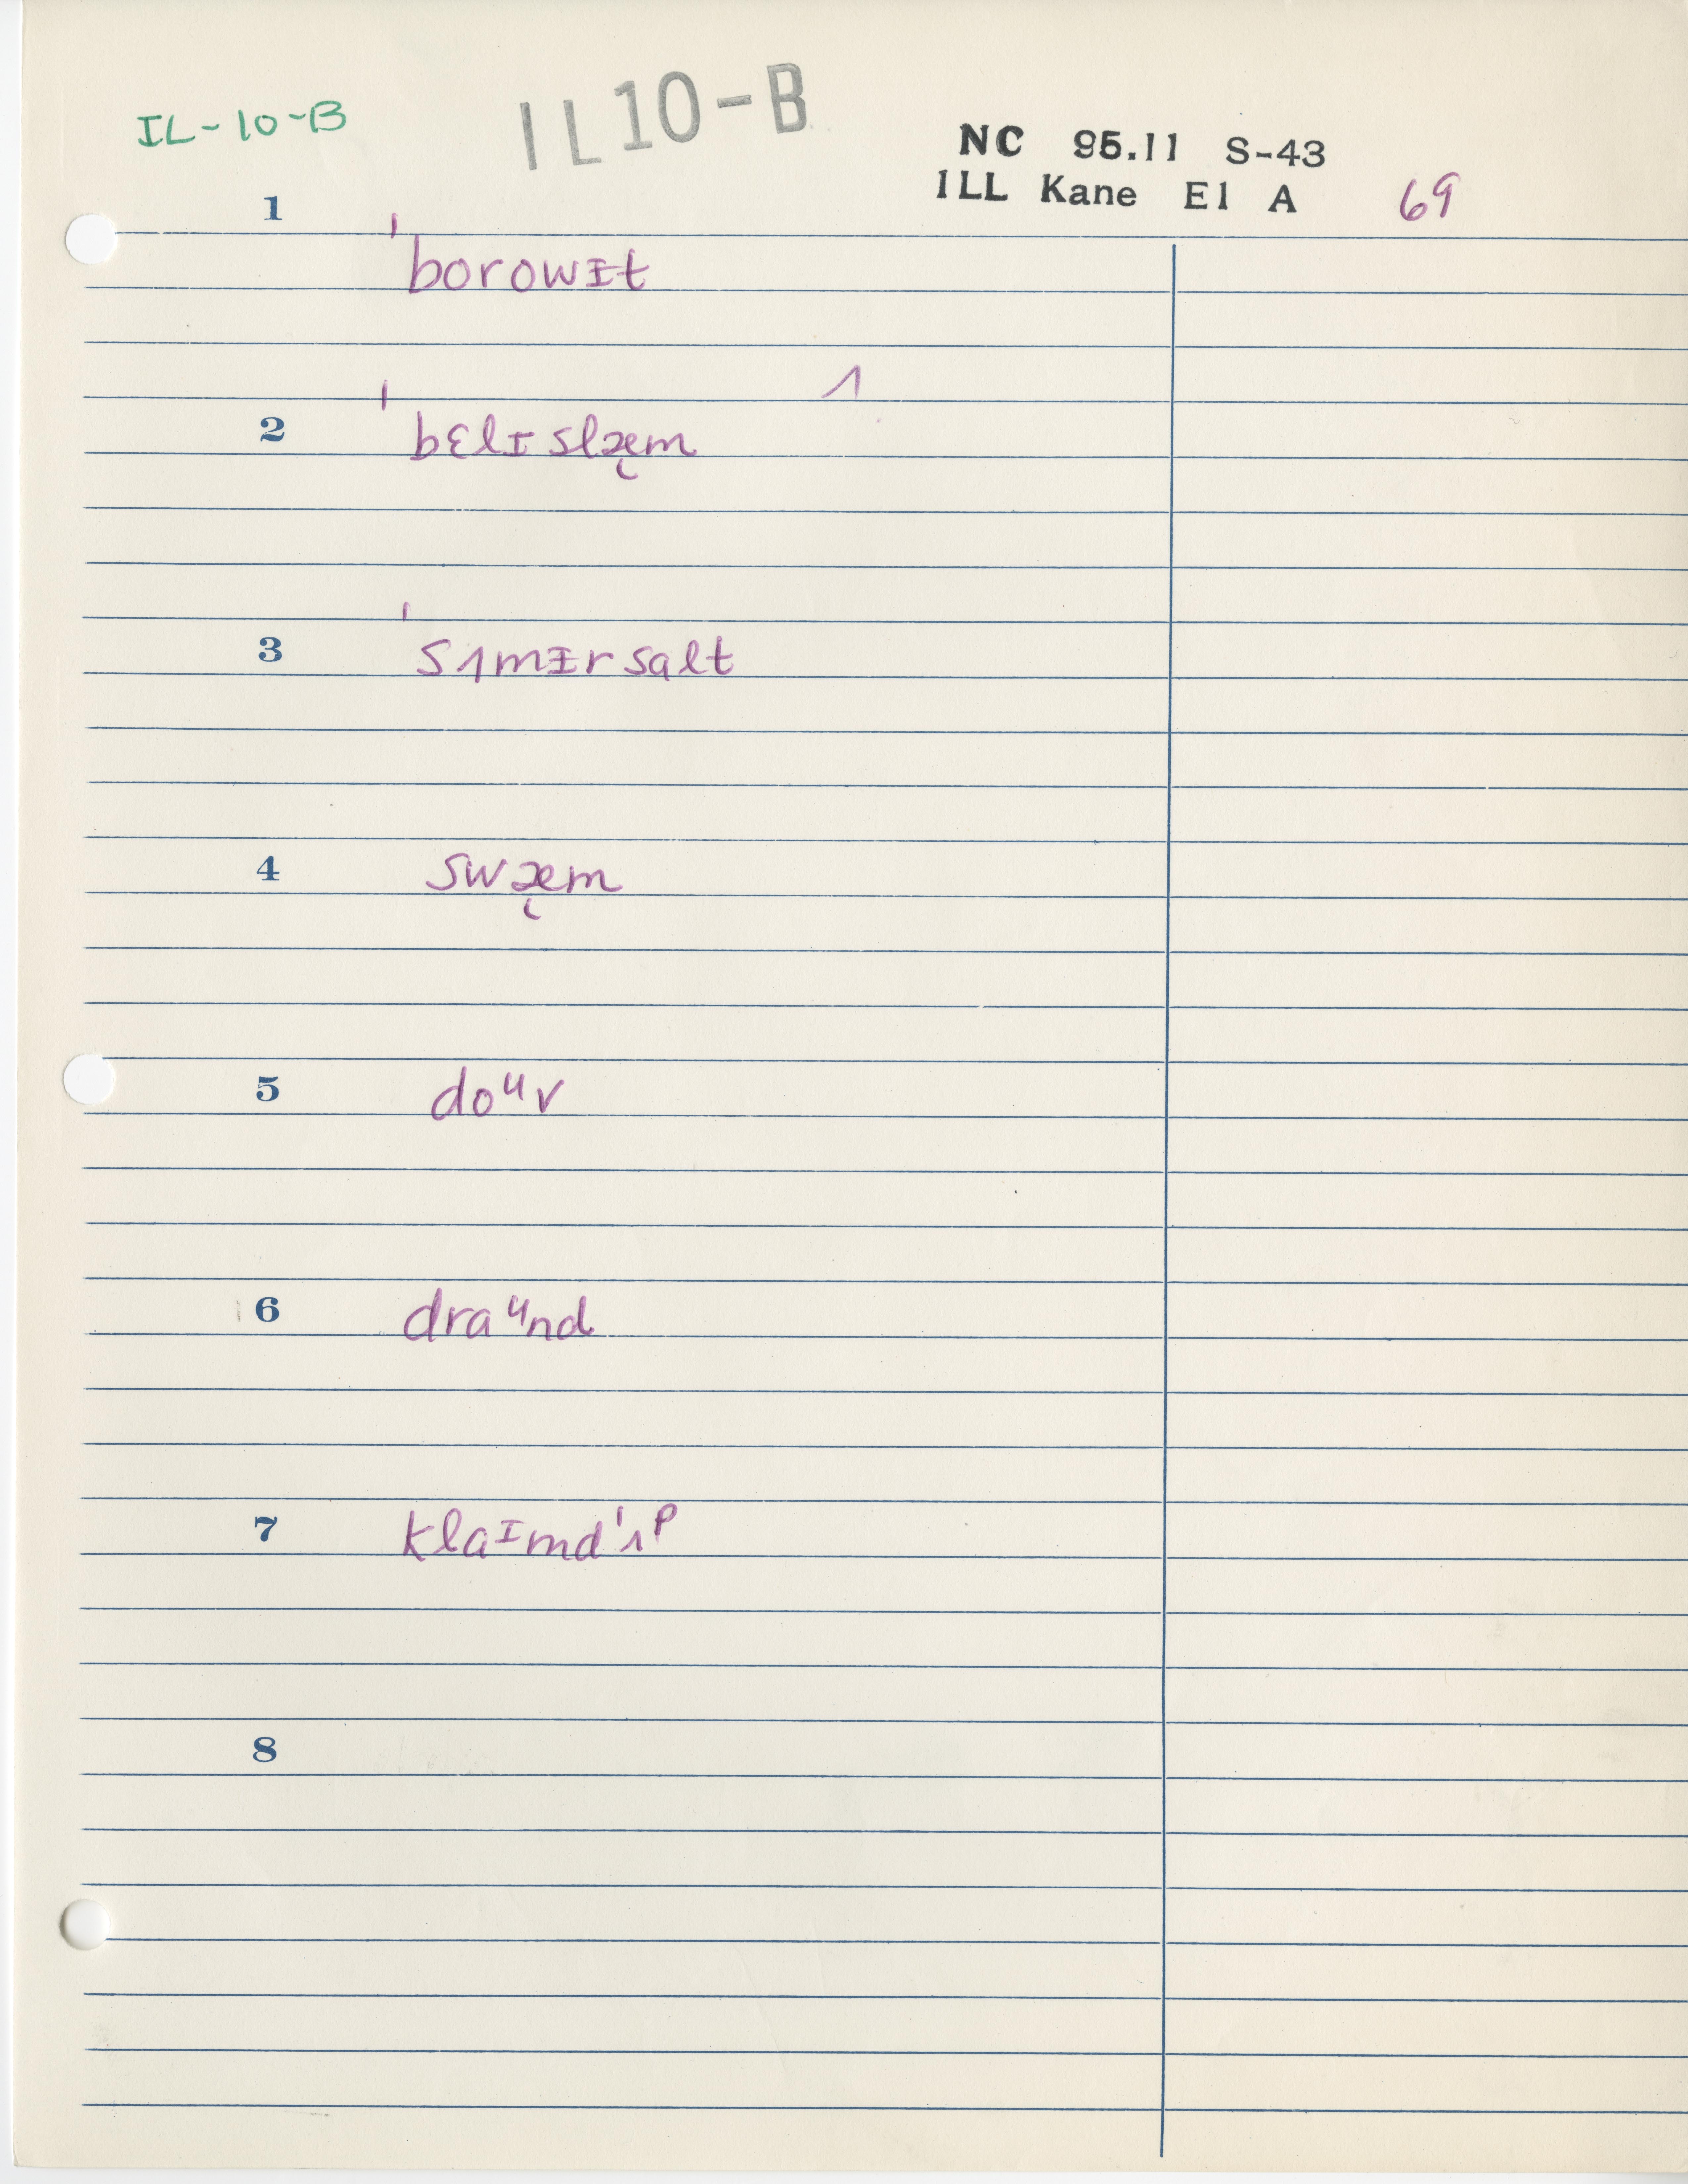 IL-10-B
IL10-B
NC 95.11 S-43
ILL Kane El A 69
1 ˈborowɪt
ʌ
2 ˈbɛlɪslæ̨m
3 ˈsʌmɪrsalt
4 swæ̨m
5 doᵘv
6 draᵘnd
7 klaᶦmdˈʌᵖ
8